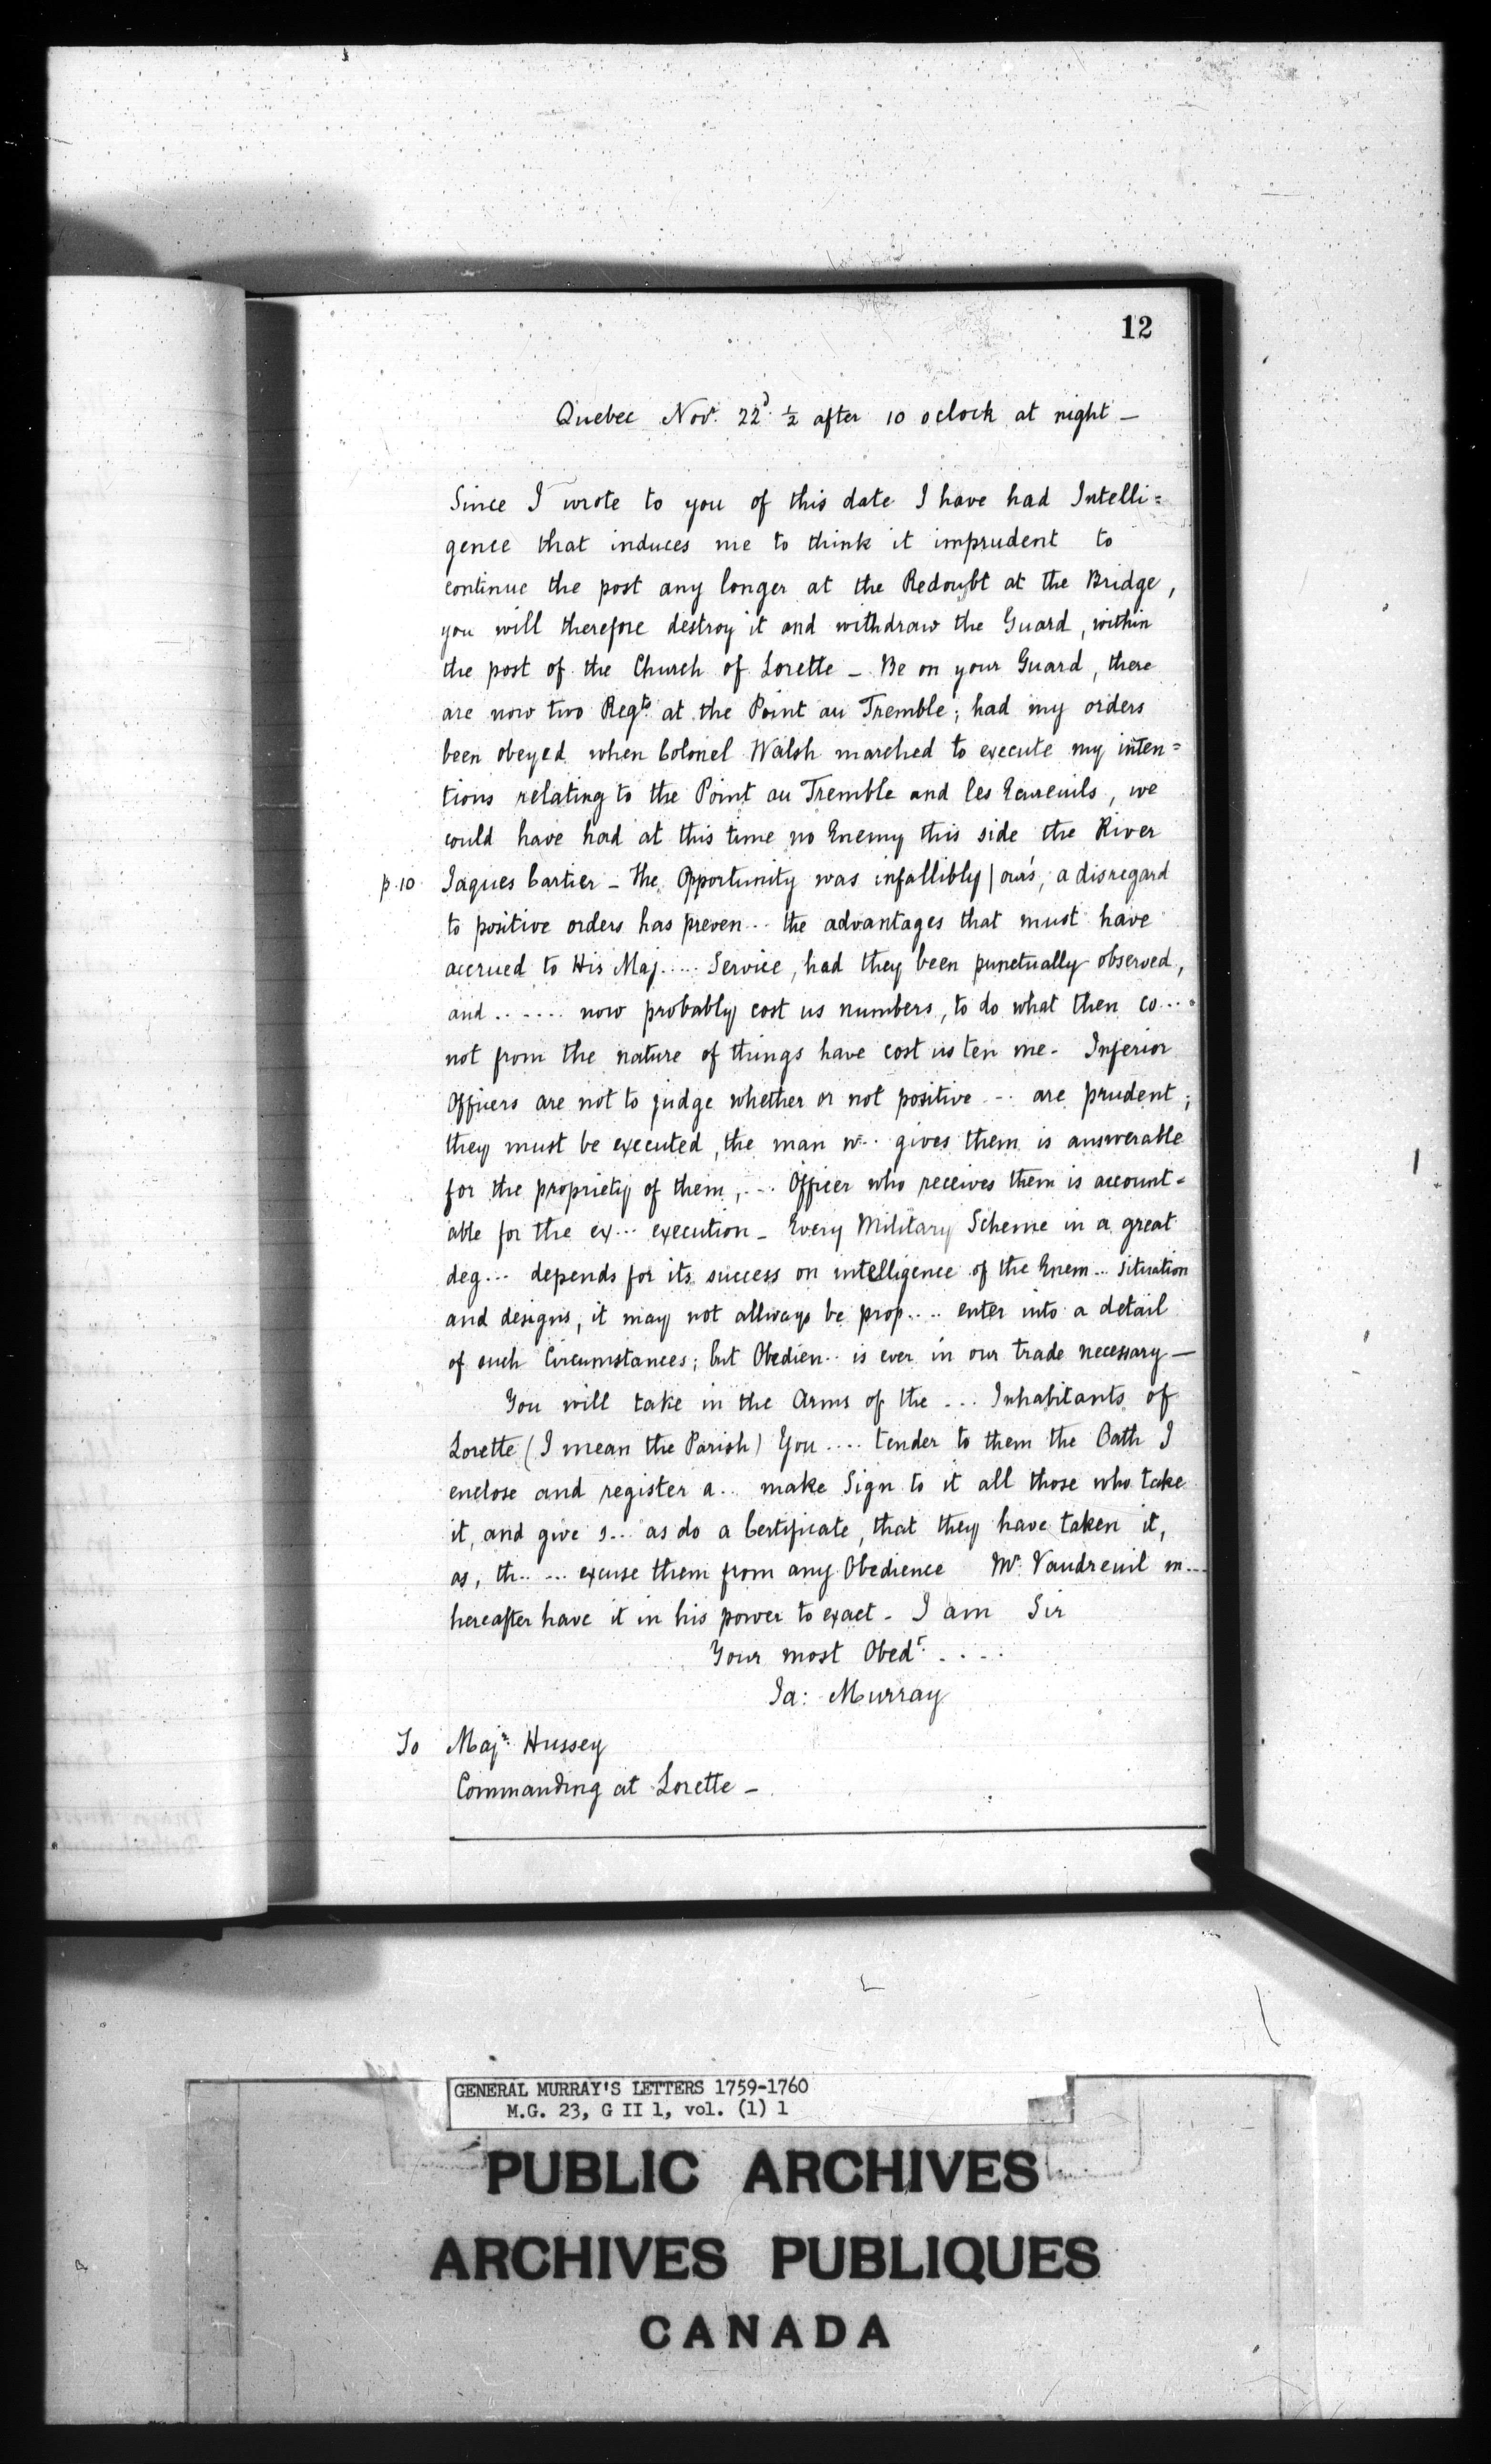 12
Quebec Novr. 22d. ½ after 10 oclock at night —
Since I wrote to you of this date I have had Intelli=
gence that induces me to think it imprudent to
continue the post any longer at the Redoubt at the Bridge,
you will therefore destroy it and withdraw the Guard, within
the post of the Church of Lorette — Be on your Guard, there
are now two Regts. at the Point au Tremble; had my orders
been obeyed when Colonel Walsh marched to execute my inten=
tions relating to the Point au Tremble and les Ecureuils, we
could have had at this time no Enemy this side the River
p.10 Jaques Cartier — The Opportunity was infallibly | our's, a disregard
to positive orders has preven... the advantages that must have
accrued to His Maj..... Service, had they been punctually observed,
and ...... now probably cost us numbers, to do what then co....
not from the nature of things have cost us ten me- Inferior
Officers are not to judge whether or not positive ... are prudent;
they must be executed, the man w.. gives them is answerable
for the propriety of them, ... Officer who receives them is account=
able for the ex... execution — Every Military Scheme in a great
deg... depends for its success on intelligence of the Enem... situation
and designs, it may not allways be prop.... enter into a detail
of such Circumstances; but Obedien.. is ever in our trade necessary —
You will take in the Arms of the ... Inhabitants of
Lorette (I mean the Parish) You .... tender to them the Oath I
enclose and register a.. make Sign to it all those who take
it, and give s... as do a Certificate, that they have taken it,
as, th.. ... excuse them from any Obedience Mr. Vaudreuil m...
hereafter have it in his power to exact - I am Sir
Your most Obedt. ....
Ja: Murray
To Majr. Hussey
Commanding at Lorette —
GENERAL MURRAY'S LETTERS 1759-1760
M.G. 23, G II 1, vol. (1) 1
PUBLIC ARCHIVES
ARCHIVES PUBLIQUES
CANADA